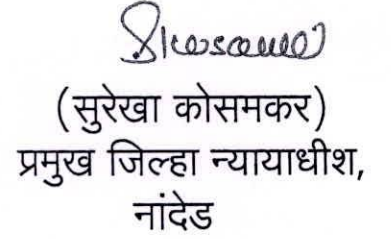 (सुरेखा कोसमकर)
प्रमुख जिल्हा न्यायाधीश,
नांदेड